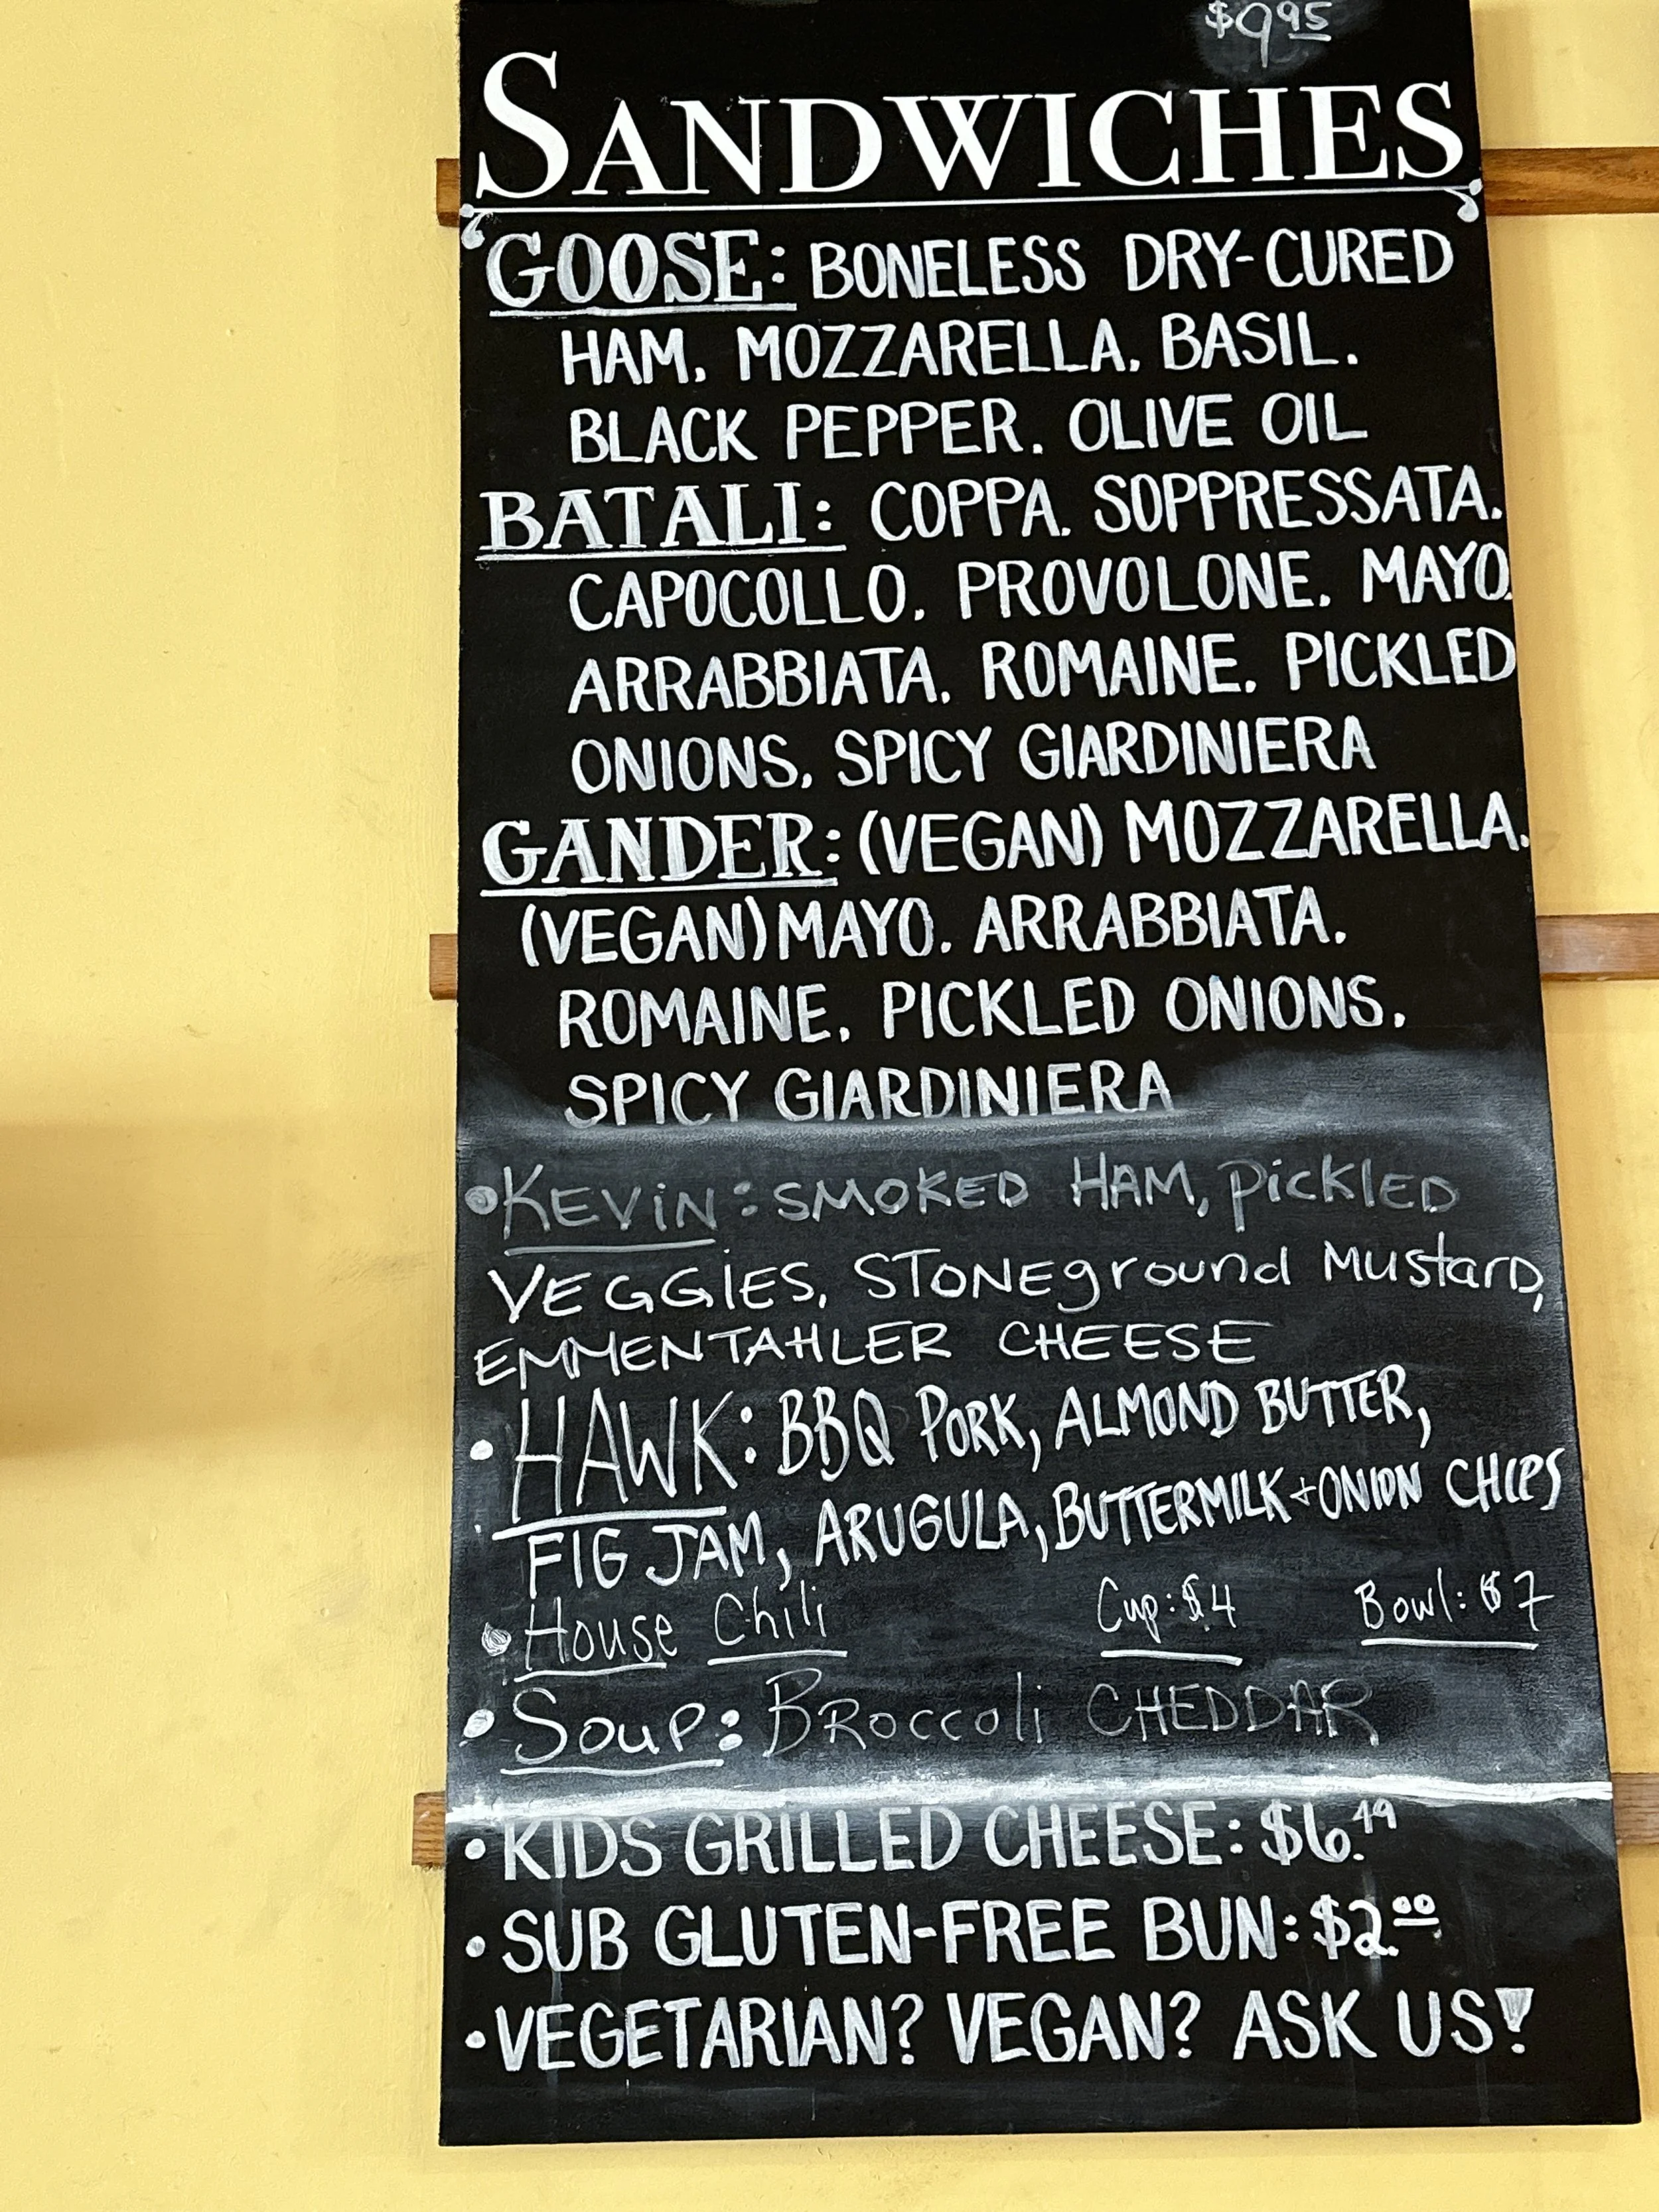 $9.95
SANDWICHES
GOOSE: BONELESS DRY-CURED
HAM. MOZZARELLA. BASIL.
BLACK PEPPER. OLIVE OIL
BATALI: COPPA. SOPPRESSATA.
CAPOCOLLO. PROVOLONE. MAYO.
ARRABBIATA. ROMAINE. PICKLED
ONIONS. SPICY GIARDINIERA
GANDER: (VEGAN) MOZZARELLA.
(VEGAN) MAYO. ARRABBIATA.
ROMAINE. PICKLED ONIONS.
SPICY GIARDINIERA
• KEViN: SMOKED HAM, PiCKlED
VEGGiES, STONEground Mustard,
EMMENTAHLER CHEESE
• HAWK: BBQ PORK, ALMOND BUTTER,
FIG JAM, ARUGULA, BUTTERMILK + ONION CHIPS
• House Chili Cup: $4 Bowl: $7
• Soup: Broccoli CHEDDAR
• KIDS GRILLED CHEESE: $6.49
• SUB GLUTEN-FREE BUN: $2.00
• VEGETARIAN? VEGAN? ASK US!